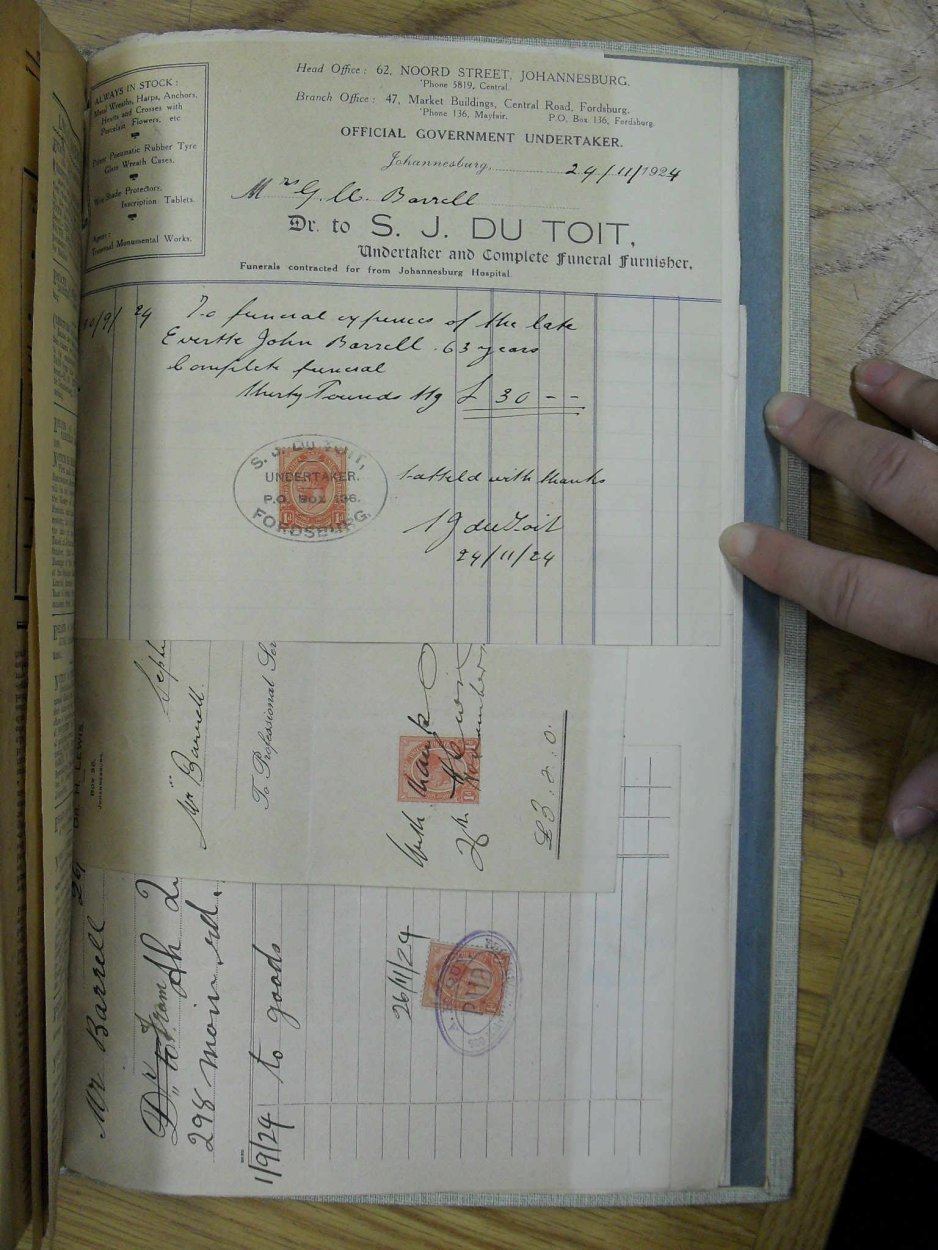 ALWAYS IN STOCK:
Wreaths, Harps, Anchors,
Hearts and Crosses with
Porcelain Flowers, etc
Pneumatic Rubber Tyre
Glass Wreath Cases.
Shade Protectors,
Inscription Tablets.
Agent:
Universal Monumental Works.
Head Office: 62, NOORD STREET, JOHANNESBURG.
'Phone 5819, Central.
Branch Office: 47, Market Buildings, Central Road, Fordsburg.
'Phone 136, Mayfair. P.O. Box 136, Fordsburg.
OFFICIAL GOVERNMENT UNDERTAKER.
Johannesburg, 24/11/1924
Mrs G. Barrell
Dr. to S. J. DU TOIT,
Undertaker and Complete Funeral Furnisher.
Funerals contracted for from Johannesburg Hospital.
/9/24 To funeral expences of the late
John Barrell. 63 years
Complete funeral
thirty Pounds Stg £ 30 - -
S. J. DU TOIT,
UNDERTAKER.
P.O. BOX 136.
FORDSBURG.
with thanks
S J du Toit
24/11/24
DR. H. LEWIS.
BOX 50,
JOHANNESBURG.
Septe
Mr Barrell.
To Professional Ser
With thanks
H Lewis
£3. 2. 0.
Mr Barrell 29
Dr to
From
298 main rd.
1/9/24 to goods
26/11/24